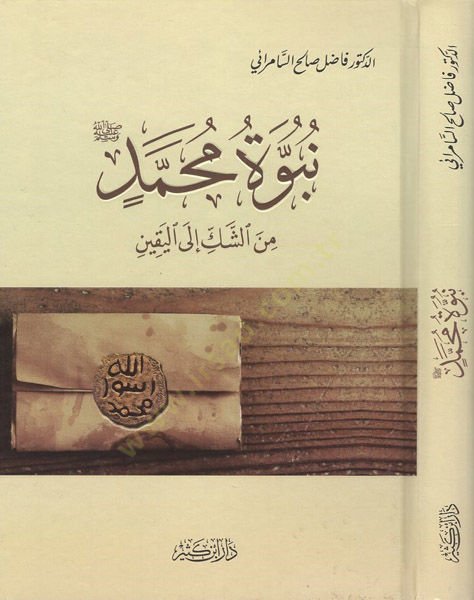 الدكتور فاضل صالح السامرائي
ﷺ
نُبُوَّةُ مُحَمَّدٍ
مِنَ الشَّكِّ إِلَى اليَقِينِ
الله
رسول
محمد
دار ابن كثير
الدكتور فاضل صالح السامرائي
نُبُوَّةُ مُحَمَّدٍ ﷺ
دار ابن كثير